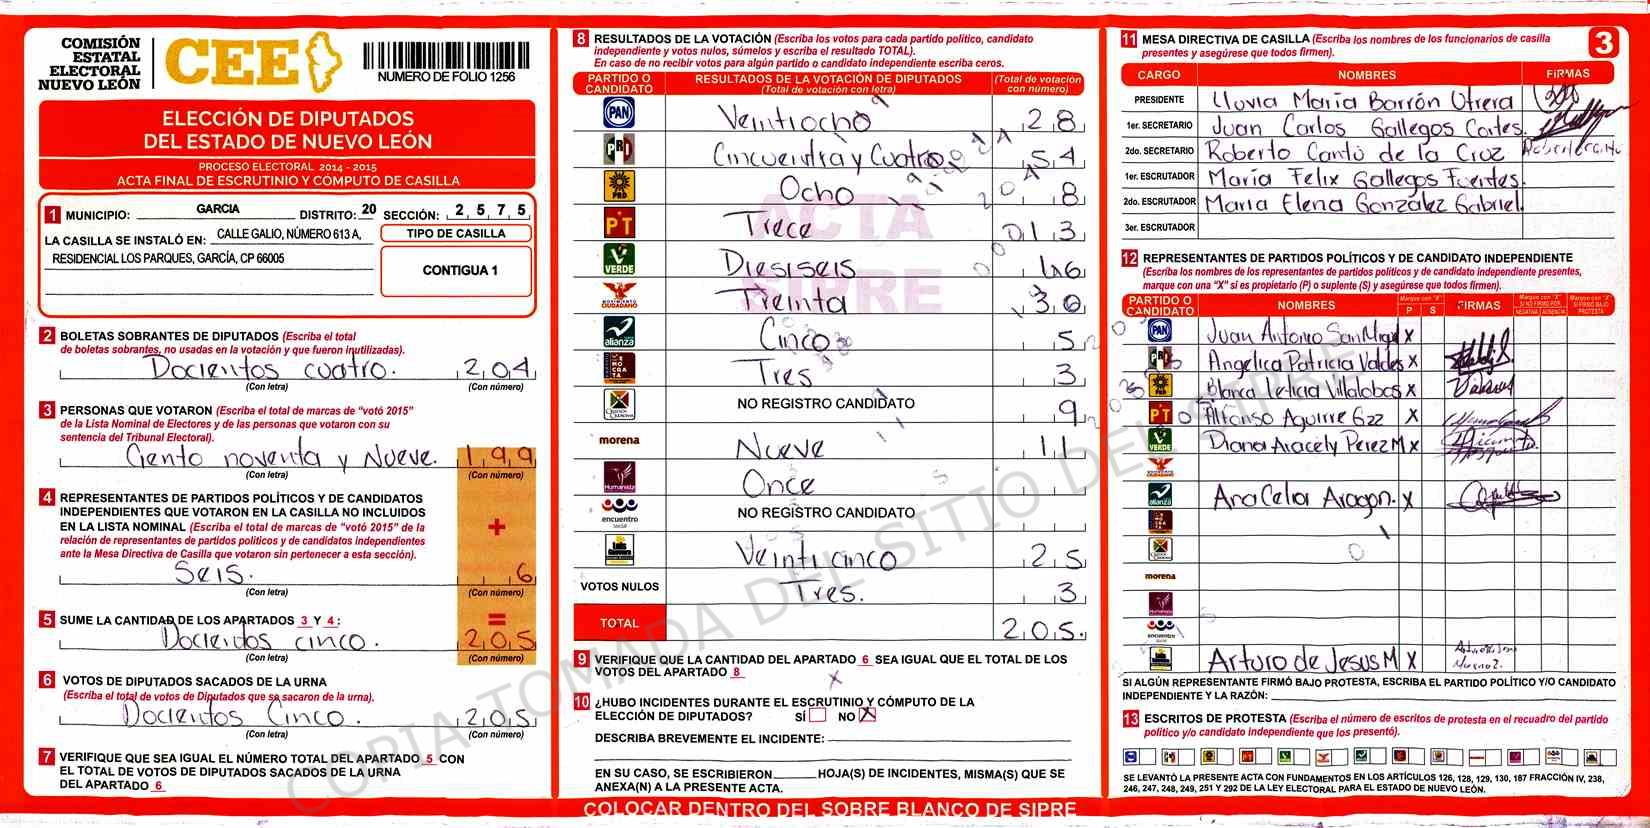 COMISIÓN
ESTATAL
ELECTORAL
NUEVO LEÓN
CEE
NUMERO DE FOLIO 1256
ELECCIÓN DE DIPUTADOS
DEL ESTADO DE NUEVO LEÓN
PROCESO ELECTORAL 2014 - 2015
ACTA FINAL DE ESCRUTINIO Y CÓMPUTO DE CASILLA
1 MUNICIPIO: GARCIA DISTRITO: 20 SECCIÓN: 2 5 7 5
LA CASILLA SE INSTALÓ EN: CALLE GALIO, NÚMERO 613 A,
RESIDENCIAL LOS PARQUES, GARCÍA, CP 66005
TIPO DE CASILLA
CONTIGUA 1
2 BOLETAS SOBRANTES DE DIPUTADOS (Escriba el total
de boletas sobrantes, no usadas en la votación y que fueron inutilizadas).
Docientos cuatro. 204
(Con letra) (Con número)
3 PERSONAS QUE VOTARON (Escriba el total de marcas de “votó 2015”
de la Lista Nominal de Electores y de las personas que votaron con su
sentencia del Tribunal Electoral).
Ciento noventa y Nueve. 199
(Con letra) (Con número)
4 REPRESENTANTES DE PARTIDOS POLÍTICOS Y DE CANDIDATOS
INDEPENDIENTES QUE VOTARON EN LA CASILLA NO INCLUIDOS
EN LA LISTA NOMINAL (Escriba el total de marcas de “votó 2015” de la
relación de representantes de partidos políticos y de candidatos independientes
ante la Mesa Directiva de Casilla que votaron sin pertenecer a esta sección).
+
Seis. 6
(Con letra) (Con número)
5 SUME LA CANTIDAD DE LOS APARTADOS 3 Y 4 : =
Docientos cinco. 205
(Con letra) (Con número)
6 VOTOS DE DIPUTADOS SACADOS DE LA URNA
(Escriba el total de votos de Diputados que se sacaron de la urna).
Docientos Cinco. 205
(Con letra) (Con número)
7 VERIFIQUE QUE SEA IGUAL EL NÚMERO TOTAL DEL APARTADO 5 CON
EL TOTAL DE VOTOS DE DIPUTADOS SACADOS DE LA URNA
DEL APARTADO 6
8 RESULTADOS DE LA VOTACIÓN (Escriba los votos para cada partido político, candidato
independiente y votos nulos, súmelos y escriba el resultado TOTAL).
En caso de no recibir votos para algún partido o candidato independiente escriba ceros.
PARTIDO O CANDIDATO RESULTADOS DE LA VOTACIÓN DE DIPUTADOS (Total de votación con letra) (Total de votación con número)
PAN Veintiocho 28
PRD Cincuentra y Cuatro 54
PRD Ocho 8
PT Trece 013
VERDE Diesiseis 16
MOVIMIENTO CIUDADANO Treinta 30
alianza Cinco 5
DEMOCRATA Tres 3
NO REGISTRO CANDIDATO 9
morena Nueve 11
Humanista Once
encuentro social NO REGISTRO CANDIDATO
Veinticinco 25
VOTOS NULOS Tres. 3
TOTAL 205.
ACTA
SIPRE
9 VERIFIQUE QUE LA CANTIDAD DEL APARTADO 6 SEA IGUAL QUE EL TOTAL DE LOS
VOTOS DEL APARTADO 8
10 ¿HUBO INCIDENTES DURANTE EL ESCRUTINIO Y CÓMPUTO DE LA
ELECCIÓN DE DIPUTADOS? SÍ NO X
DESCRIBA BREVEMENTE EL INCIDENTE:
EN SU CASO, SE ESCRIBIERON HOJA(S) DE INCIDENTES, MISMA(S) QUE SE
ANEXA(N) A LA PRESENTE ACTA.
COLOCAR DENTRO DEL SOBRE BLANCO DE SIPRE
11 MESA DIRECTIVA DE CASILLA (Escriba los nombres de los funcionarios de casilla
presentes y asegúrese que todos firmen).
3
CARGO NOMBRES FIRMAS
PRESIDENTE Lluvia María Barrón Utrera
1er. SECRETARIO Juan Carlos Gallegos Cortes.
2do. SECRETARIO Roberto Cantú de la Cruz
1er. ESCRUTADOR María Felix Gallegos Fuentes.
2do. ESCRUTADOR Maria Elena González Gabriel
3er. ESCRUTADOR
12 REPRESENTANTES DE PARTIDOS POLÍTICOS Y DE CANDIDATO INDEPENDIENTE
(Escriba los nombres de los representantes de partidos políticos y de candidato independiente presentes,
marque con una “X” si es propietario (P) o suplente (S) y asegúrese que todos firmen).
PARTIDO O CANDIDATO NOMBRES Marque con “X” P S FIRMAS Marque con “X” SI NO FIRMÓ POR NEGATIVA AUSENCIA Marque con “X” SI FIRMÓ BAJO PROTESTA
PAN Juan Antonio San Miguel X
PRD Angelica Patricia Valdes X
PRD Blanca Leticia Villalobos X
PT Alfonso Aguirre Gzz X
VERDE Diana Aracely Perez M X
alianza Ana Celia Aragon. X
morena
encuentro social
Arturo de Jesus M X
SI ALGÚN REPRESENTANTE FIRMÓ BAJO PROTESTA, ESCRIBA EL PARTIDO POLÍTICO Y/O CANDIDATO
INDEPENDIENTE Y LA RAZÓN:
13 ESCRITOS DE PROTESTA (Escriba el número de escritos de protesta en el recuadro del partido
político y/o candidato independiente que los presentó).
SE LEVANTÓ LA PRESENTE ACTA CON FUNDAMENTOS EN LOS ARTÍCULOS 126, 128, 129, 130, 187 FRACCIÓN IV, 238,
246, 247, 248, 249, 251 Y 292 DE LA LEY ELECTORAL PARA EL ESTADO DE NUEVO LEÓN.
COPIA TOMADA DEL SITIO DEL SIPRE